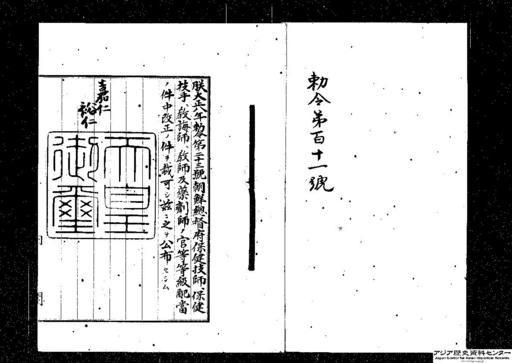 勅令第百十一號
朕大正八年勅令第二十三號朝鮮總督府保健技師、保健
技手、教誨師、教師及藥劑師ノ官等等級配當
ノ件中改正ノ件ヲ裁可シ茲ニ之ヲ公布セシム
嘉仁
裕仁
天皇
御璽
アジア歴史資料センター
Japan Center for Asian Historical Records